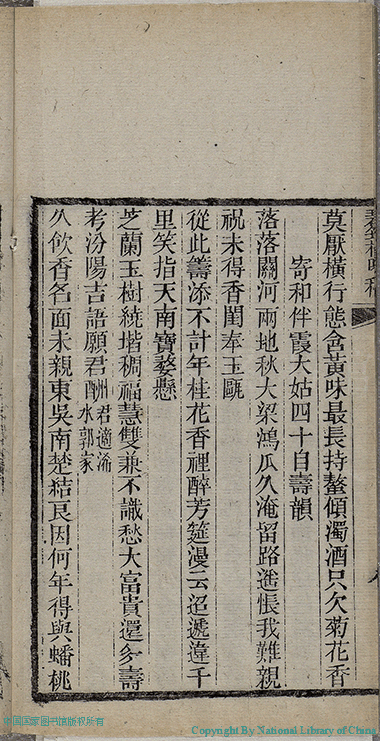 莫厭橫行態含黃味最長持螯傾濁酒只欠菊花香
寄和伴霞大姑四十自壽韻
落落關河兩地秋大梁鴻瓜久淹留路遙悵我難親
祝未得香閨奉玉甌
從此籌添不計年桂花香裡醉芳筵漫云迢遞違千
里笑指天南寶婺懸
芝蘭玉樹繞堦稠福慧雙兼不識愁大富貴還多壽
考汾陽吉語願君酬
君適浠
水郭家
久飲香名面未親東吳南楚結良因何年得與蟠桃
中国国家图书馆版权所有
Copyright By National Library of China